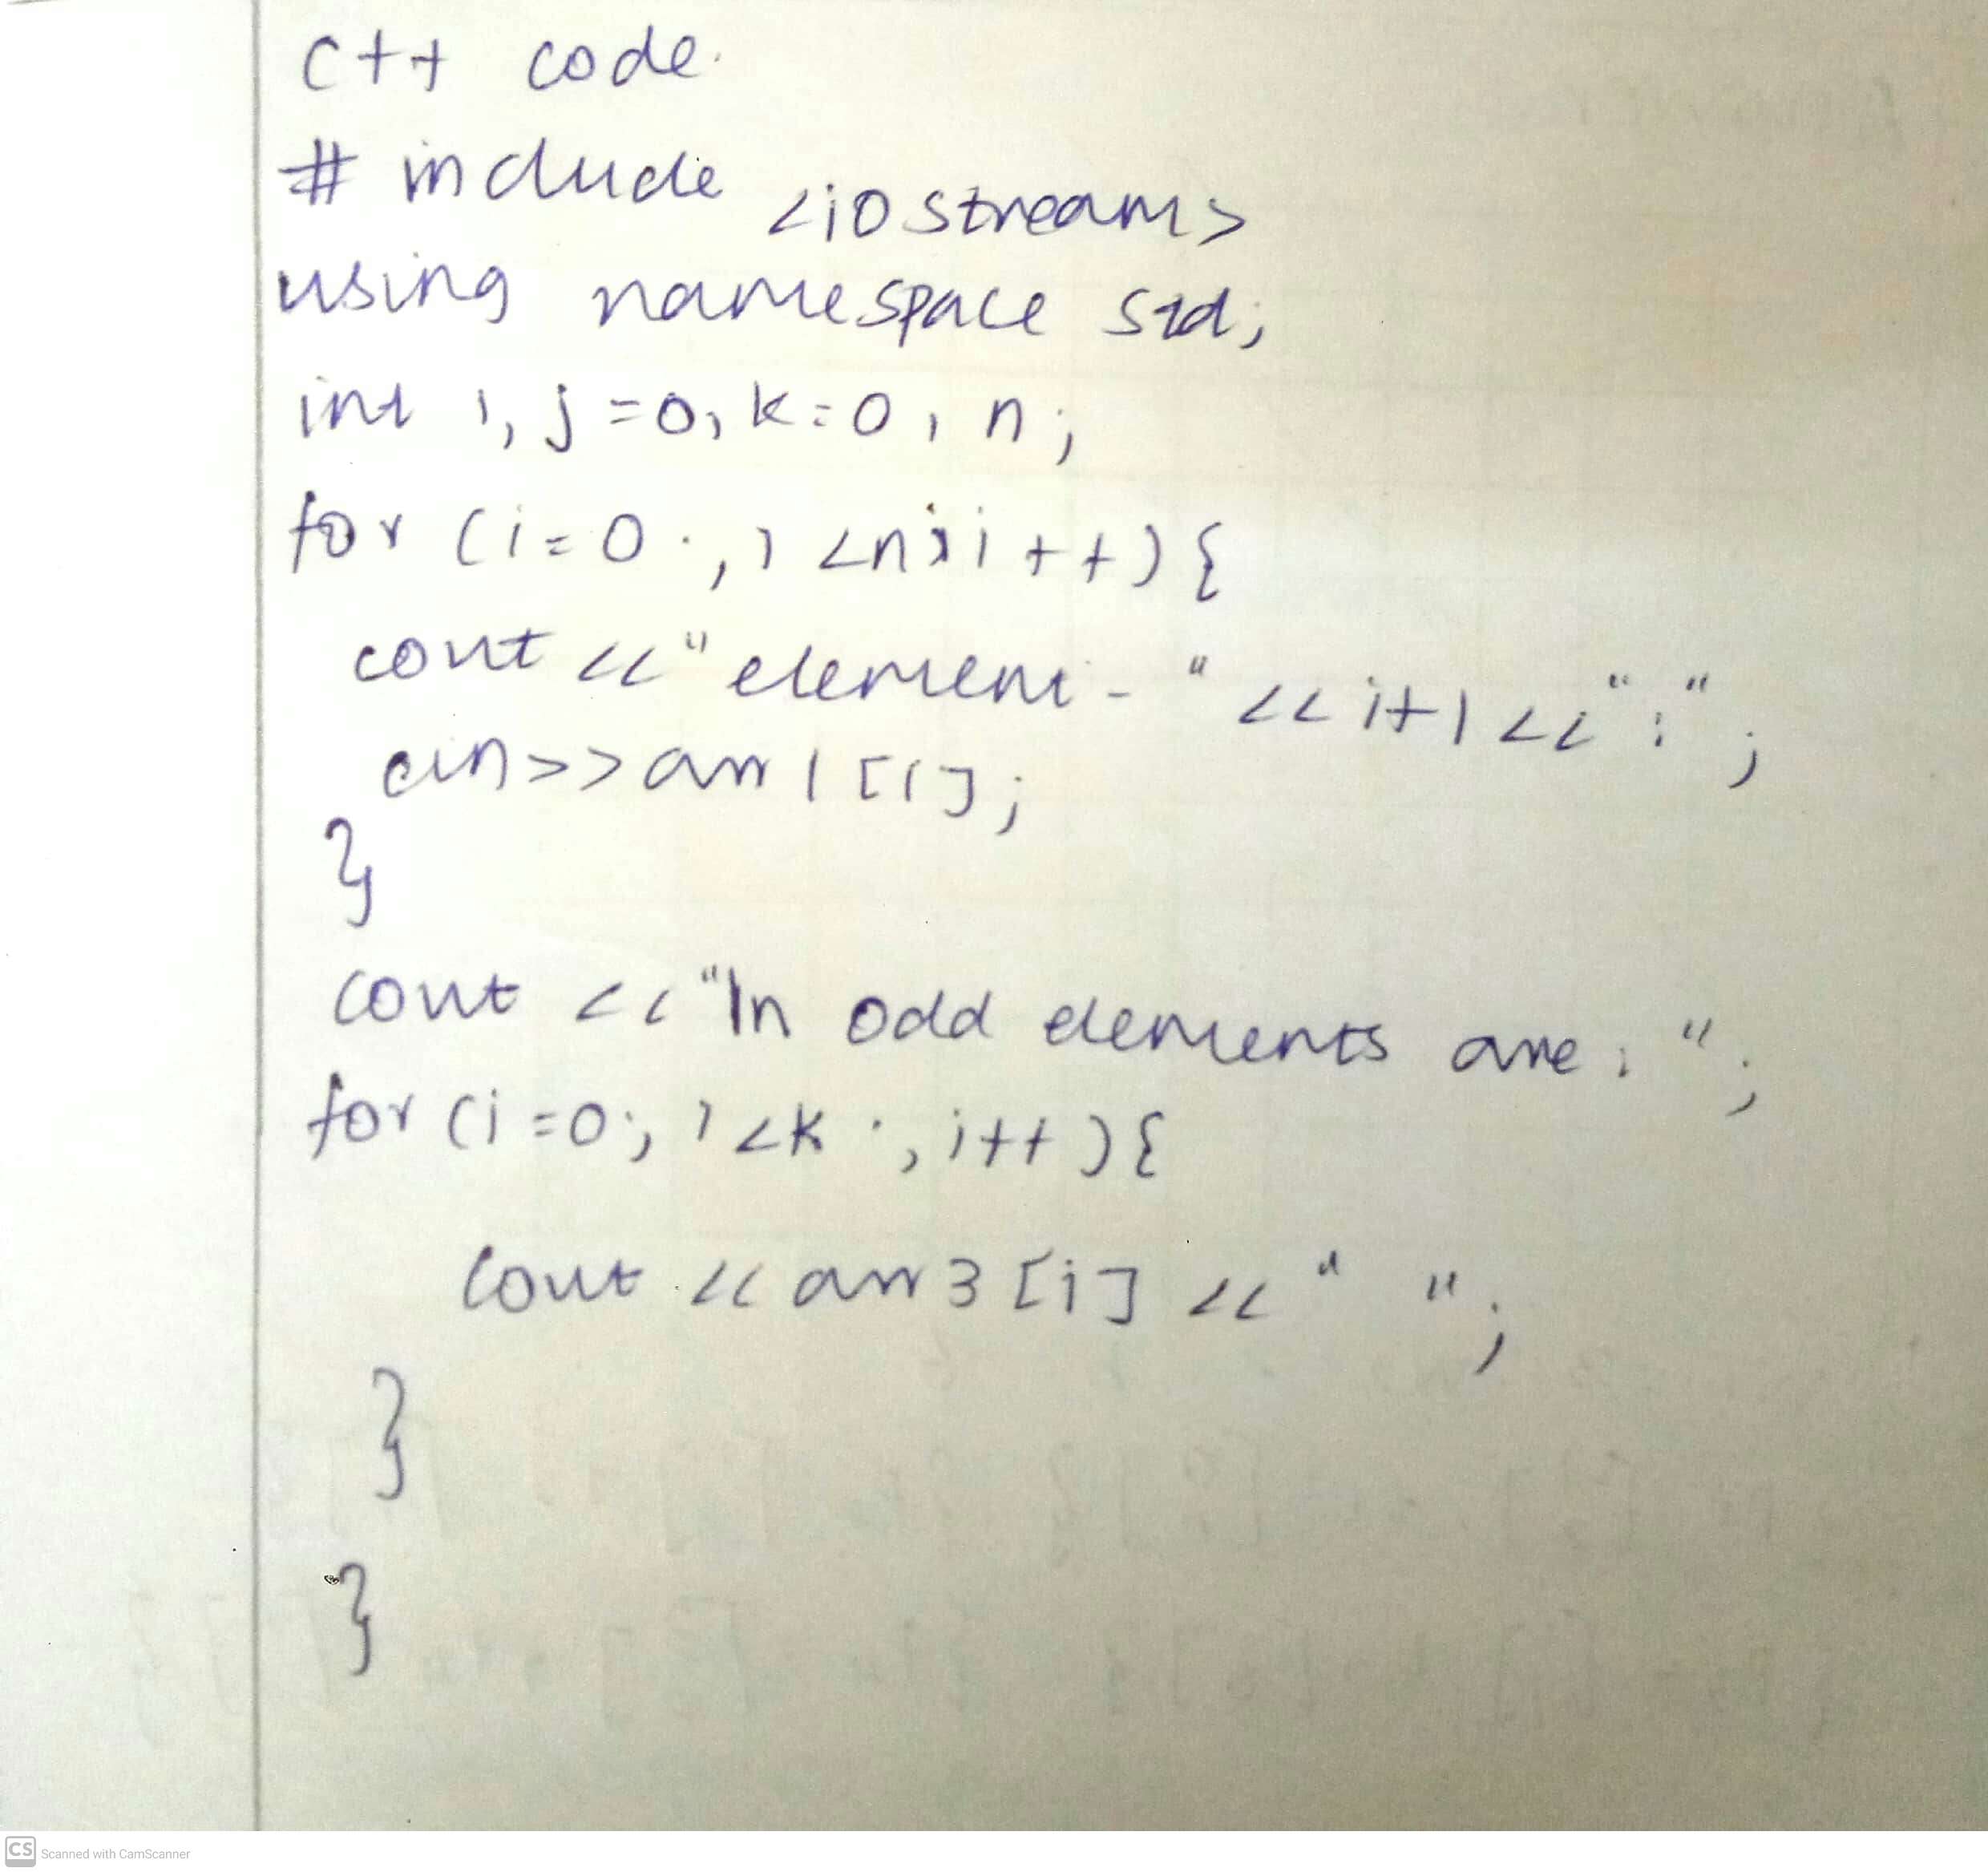 C++ code.
# include <iostream>
using namespace std;
int i, j=0, k=0, n;
for (i=0; i<n; i++){
cout <<"element-"<<i+1<<":";
cin>>arr1[i];
}
cout <<"In odd elements are: ";
for (i=0; i<k; i++){
cout << arr3[i] <<" ";
}
}
CS Scanned with CamScanner